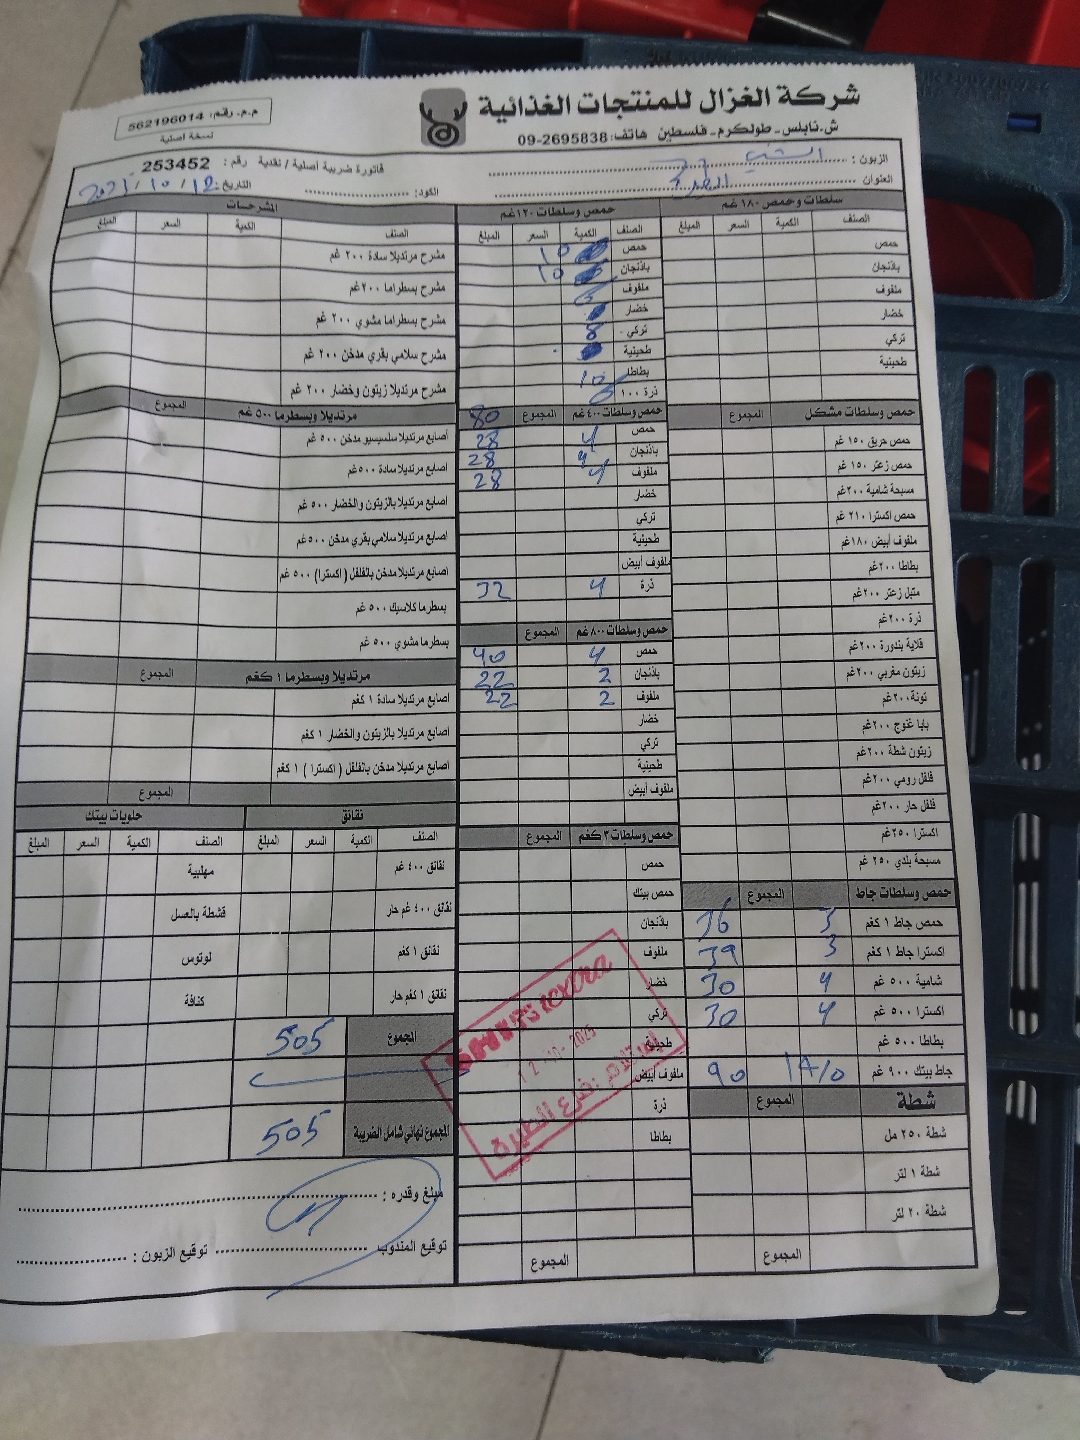 شركة الغزال للمنتجات الغذائية
ش.نابلس - طولكرم - فلسطين هاتف: 09-2695838
م.م. رقم: 562196014
نسخة اصلية
فاتورة ضريبية أصلية / نقدية رقم: 253452
الزبون:
العنوان
الكود:
التاريخ:
سلطات وحمص ١٨٠ غم
الصنف الكمية السعر المبلغ
حمص
باذنجان
ملفوف
خضار
تركي
طحينية
حمص وسلطات مشكل المجموع
حمص حريق ١٥٠ غم
حمص زعتر ١٥٠ غم
مسبحة شامية ٢٠٠غم
حمص اكسترا ٢١٠ غم
ملفوف أبيض ١٨٠غم
بطاطا ٢٠٠غم
متبل زعتر ٢٠٠غم
ذرة ٢٠٠غم
قلاية بندورة ٢٠٠غم
زيتون مغربي ٢٠٠غم
تونة ٢٠٠غم
بابا غنوج ٢٠٠غم
زيتون شطة ٢٠٠غم
فلفل رومي ٢٠٠غم
فلفل حار ٢٠٠غم
اكسترا ٢٥٠غم
مسبحة بلدي ٢٥٠ غم
حمص وسلطات جاط المجموع
حمص جاط ١ كغم 3 36
اكسترا جاط ١ كغم 3 39
شامية ٥٠٠ غم 4 30
اكسترا ٥٠٠ غم 4 30
بطاطا ٥٠٠ غم
جاط بيتك ٩٠٠ غم 90
شطة المجموع
شطة ٢٥٠ مل
شطة ١ لتر
شطة ٢٠ لتر
المجموع
حمص وسلطات ١٢٠غم
الصنف الكمية السعر المبلغ
حمص 10
باذنجان 10
ملفوف
خضار
تركي 8
طحينية
بطاطا 10
ذرة ١٠٠
حمص وسلطات ٤٠٠غم المجموع 80
حمص 4 28
باذنجان 4 28
ملفوف 4 28
خضار
تركي
طحينية
ملفوف أبيض
ذرة 4 32
حمص وسلطات ٨٠٠غم المجموع
حمص 4 40
باذنجان 2 22
ملفوف 2 22
خضار
تركي
طحينية
ملفوف أبيض
حمص وسلطات ٣كغم المجموع
حمص
حمص بيتك
باذنجان
ملفوف
خضار
تركي
طحينية
ملفوف أبيض
ذرة
بطاطا
المجموع
extra
2025
المشرحات
الصنف الكمية السعر المبلغ
مشرح مرتديلا سادة ٢٠٠ غم
مشرح بسطراما ٢٠٠غم
مشرح بسطراما مشوي ٢٠٠ غم
مشرح سلامي بقري مدخن ٢٠٠ غم
مشرح مرتديلا زيتون وخضار ٢٠٠ غم
مرتديلا وبسطرما ٥٠٠ غم المجموع
اصابع مرتديلا سلسيسيو مدخن ٥٠٠ غم
اصابع مرتديلا سادة ٥٠٠غم
اصابع مرتديلا بالزيتون والخضار ٥٠٠ غم
اصابع مرتديلا سلامي بقري مدخن ٥٠٠غم
اصابع مرتديلا مدخن بالفلفل (اكسترا) ٥٠٠ غم
بسطرما كلاسيك ٥٠٠ غم
بسطرما مشوي ٥٠٠ غم
مرتديلا وبسطرما ١ كغم المجموع
اصابع مرتديلا سادة ١ كغم
اصابع مرتديلا بالزيتون والخضار ١ كغم
اصابع مرتديلا مدخن بالفلفل (اكسترا) ١ كغم
المجموع
نقانق
الصنف الكمية السعر المبلغ
نقانق ٤٠٠ غم
نقانق ٤٠٠ غم حار
نقانق ١ كغم
نقانق ١ كغم حار
حلويات بيتك
الصنف الكمية السعر المبلغ
مهلبية
قشطة بالعسل
لوتوس
كنافة
المجموع 505
المجموع نهائي شامل الضريبة 505
مبلغ وقدره:
توقيع المندوب توقيع الزبون: